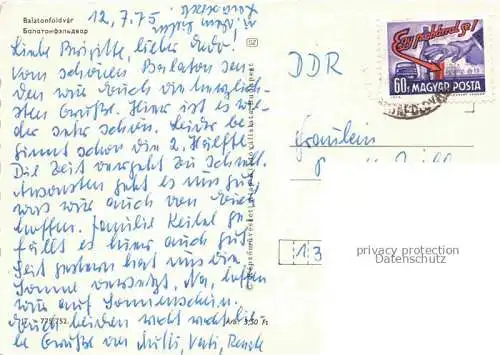 Balatonföldvár
Балатонфэльдвар
12.7.75
Liebe Brigitte, lieber Endo!
vom schönen Balaton sen-
den wir Euch die herzlich-
sten Grüße. Hier ist es wie-
der sehr schön. Leider be-
ginnt schon die 2. Hälfte
Die Zeit vergeht zu schnell
Ansonsten geht es uns gut
was wir auch von Euch
hoffen. Familie Keitel ge-
fällt es hier auch gut
Seit gestern hat uns die
Sonne versetzt. Na, hoffen
wir auf Sonnenschein.
Euch beiden recht herzli-
che Grüße von Mutti, Vati,
Ára: 3,50 Ft
Egy pohárral se!
60f MAGYAR POSTA
DDR
Fräulein
13
privacy protection
Datenschutz